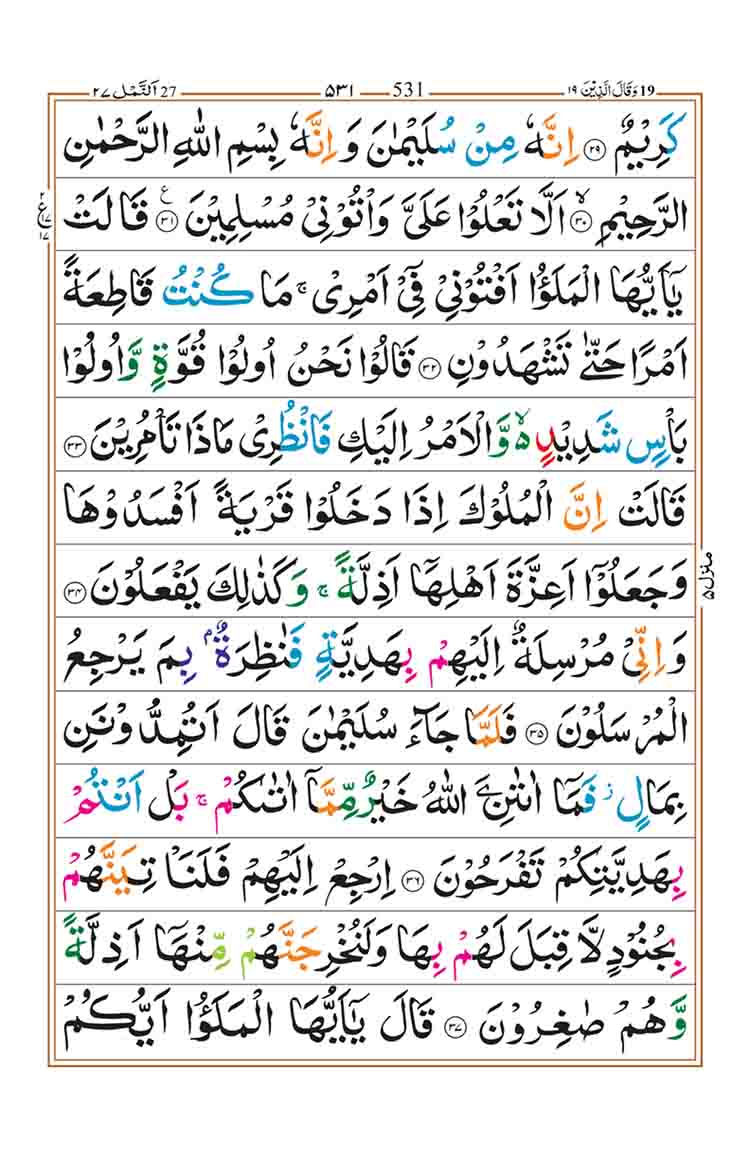 19 وَقَالَ الَّذِیْنَ ١٩ 531 ۵۳۱ 27 اَلنَّمْل ٢٧
كَرِیْمٌ ۲۹ اِنَّهٗ مِنْ سُلَیْمٰنَ وَاِنَّهٗ بِسْمِ اللّٰهِ الرَّحْمٰنِ
الرَّحِیْمِ ۙ۳۰ اَلَّا تَعْلُوْا عَلَیَّ وَاْتُوْنِیْ مُسْلِمِیْنَ ۳۱ ع قَالَتْ
٢
ع ١٧
١٧
یٰۤاَیُّهَا الْمَلَؤُا اَفْتُوْنِیْ فِیْۤ اَمْرِیْ ۚ مَا كُنْتُ قَاطِعَةً
اَمْرًا حَتّٰی تَشْهَدُوْنِ ۳۲ قَالُوْا نَحْنُ اُولُوْا قُوَّةٍ وَّاُولُوْا
بَاْسٍ شَدِیْدٍ ۙ۬ وَّالْاَمْرُ اِلَیْكِ فَانْظُرِیْ مَاذَا تَاْمُرِیْنَ ۳۳
قَالَتْ اِنَّ الْمُلُوْكَ اِذَا دَخَلُوْا قَرْیَةً اَفْسَدُوْهَا
وَجَعَلُوْۤا اَعِزَّةَ اَهْلِهَاۤ اَذِلَّةً ۚ وَكَذٰلِكَ یَفْعَلُوْنَ ۳۴
منزل ۵
وَاِنِّیْ مُرْسِلَةٌ اِلَیْهِمْ بِهَدِیَّةٍ فَنٰظِرَةٌۢ بِمَ یَرْجِعُ
الْمُرْسَلُوْنَ ۳۵ فَلَمَّا جَآءَ سُلَیْمٰنَ قَالَ اَتُمِدُّوْنَنِ
بِمَالٍ ؗ فَمَاۤ اٰتٰىنِۦَ اللّٰهُ خَیْرٌ مِّمَّاۤ اٰتٰىكُمْ ۚ بَلْ اَنْتُمْ
بِهَدِیَّتِكُمْ تَفْرَحُوْنَ ۳۶ اِرْجِعْ اِلَیْهِمْ فَلَنَاْتِیَنَّهُمْ
بِجُنُوْدٍ لَّا قِبَلَ لَهُمْ بِهَا وَلَنُخْرِجَنَّهُمْ مِّنْهَاۤ اَذِلَّةً
وَّهُمْ صٰغِرُوْنَ ۳۷ قَالَ یٰۤاَیُّهَا الْمَلَؤُا اَیُّكُمْ